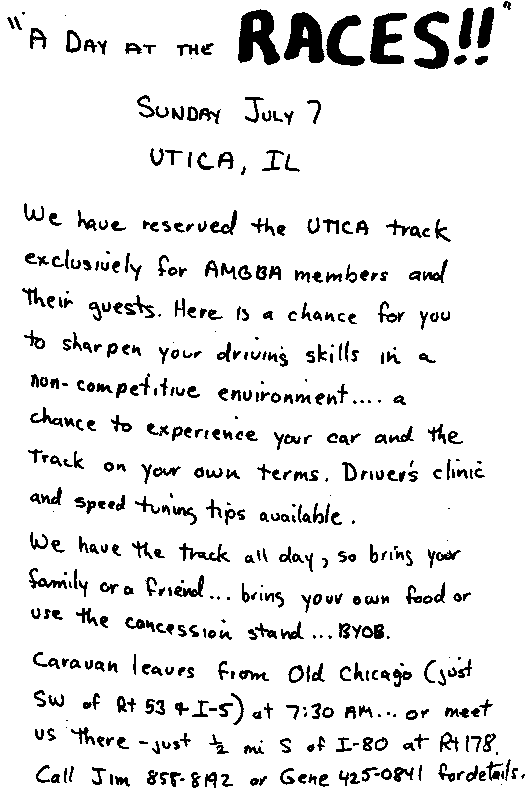 "A DAY AT THE RACES!!"
SUNDAY JULY 7
UTICA, IL
We have reserved the UTICA track
exclusively for AMGBA members and
their guests. Here is a chance for you
to sharpen your driving skills in a
non-competitive environment.... a
chance to experience your car and the
track on your own terms. Driver's clinic
and speed tuning tips available.
We have the track all day, so bring your
family or a friend... bring your own food or
use the concession stand... BYOB.
Caravan leaves from Old Chicago (just
SW of Rt 53 & I-5) at 7:30 AM... or meet
us there - just ½ mi S of I-80 at Rt 178.
Call Jim 858-8192 or Gene 425-0841 for details.